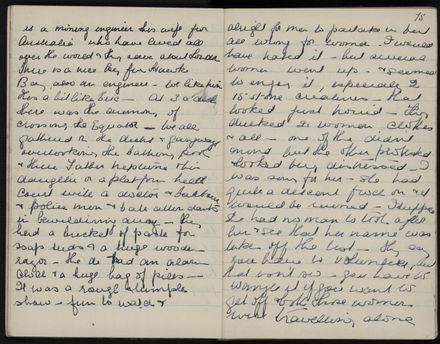 is a mining engineer & his wife from
Australia who have lived all
over the world & they rave about London
There is a nice boy from Hawkes
Bay, also an engineer - we like him
He's a bit like - At 3 o'clock
there was the ceremony of
crossing the Equator - we all
gathered on the decks & gangways
overlooking the bathing pool
& there Father Neptune & his
daughter on a platform held
Court with a doctor & barbers
& police men & bath attendants
in bewildering array - they
had a bucket of paste for
soap suds & a huge wooden
razor - the dr had an alarm
clock & a huge bag of pills -
It was a rough & tumble
show - fun to watch &
15
alright for men to partake in but
all wrong for women. I would
have hated it - but several
women went up - & seemed
to enjoy it, especially 2
15 stone creatures - that
looked just horrid - they
ducked 2 women, clothes
& all - one of them didn't
mind but the other protested
& looked very distressed - I
was sorry for her - she had
quite a decent frock on & it
would be ruined - I suppose
she had no man to look after
her & see that her name was
taken off the list - they say
you have to volunteer, but
that isn't so - you have to
wangle it if you want to
get off & both those women
were travelling alone